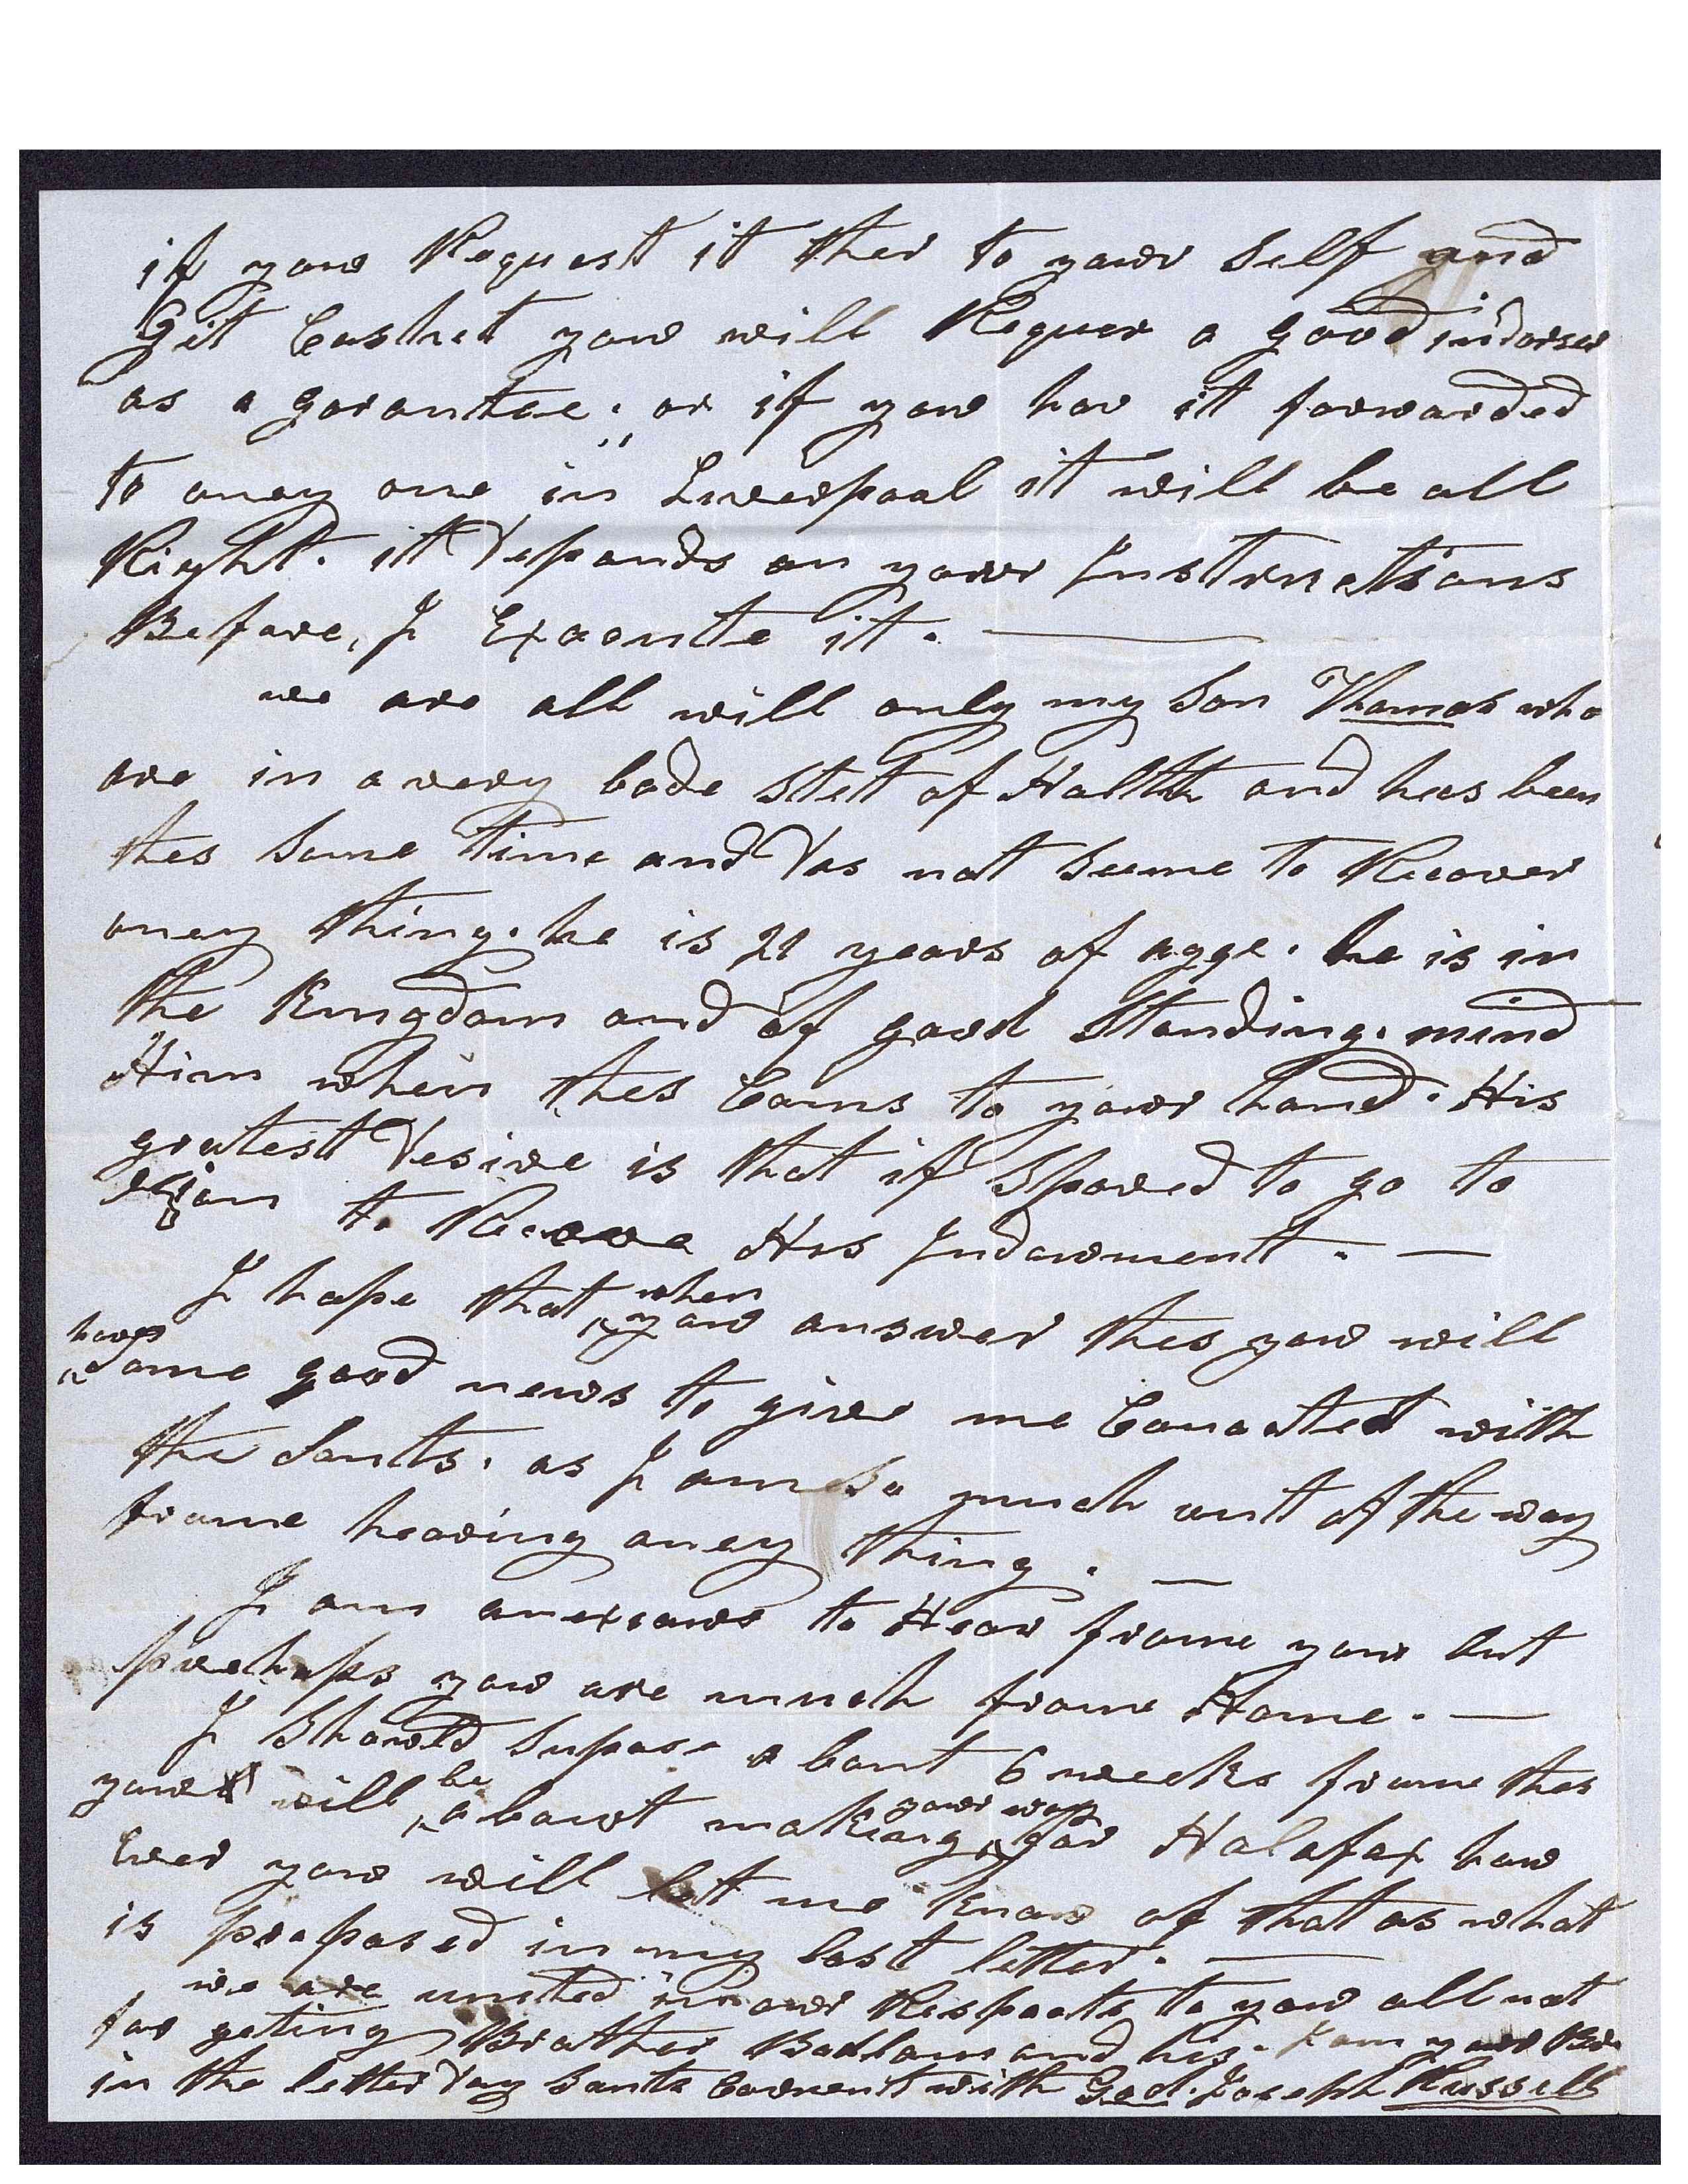 if yow Request it ther to yowr Self and
Git Cashet yow will Requer a good indorser
as a garantee. or if yow hav it forwarded
to aney one in Liverpool it will be all
Right. it Depands on yowr Instructions
Before, I Exacute it. —
we are all will only my Son Thomas who
are in a very bade Stet of Halth and has been
thes Some Time and Das not Seeme to Recover
aney thing. he is 21 years of agge. he is in
the Kingdom and of good Standing. mind
Him when thes Coms to yowr hand. His
gratest Desire is that if Spared to go to
to His Indowment. —
I hope that when yow answer thes yow will
have Some good news to give me Conacted with
the Sants. as I am So much out of the way
frome hearing aney thing. —
I am anexiows to Hear frome yow but
prehaps yow are much frome Home. —
I Showld Supose about 6 weeks frome thes
yow will be abowt making yowr way for Halafax how
Ever yow will let me know of that as what
is proposed in my last letter. —
we are united in owr Respects to yow all not
for geting Brother Badlam and his. I am yowr Bro
in the letter Day Sants Covnent with God. Joseph Russell